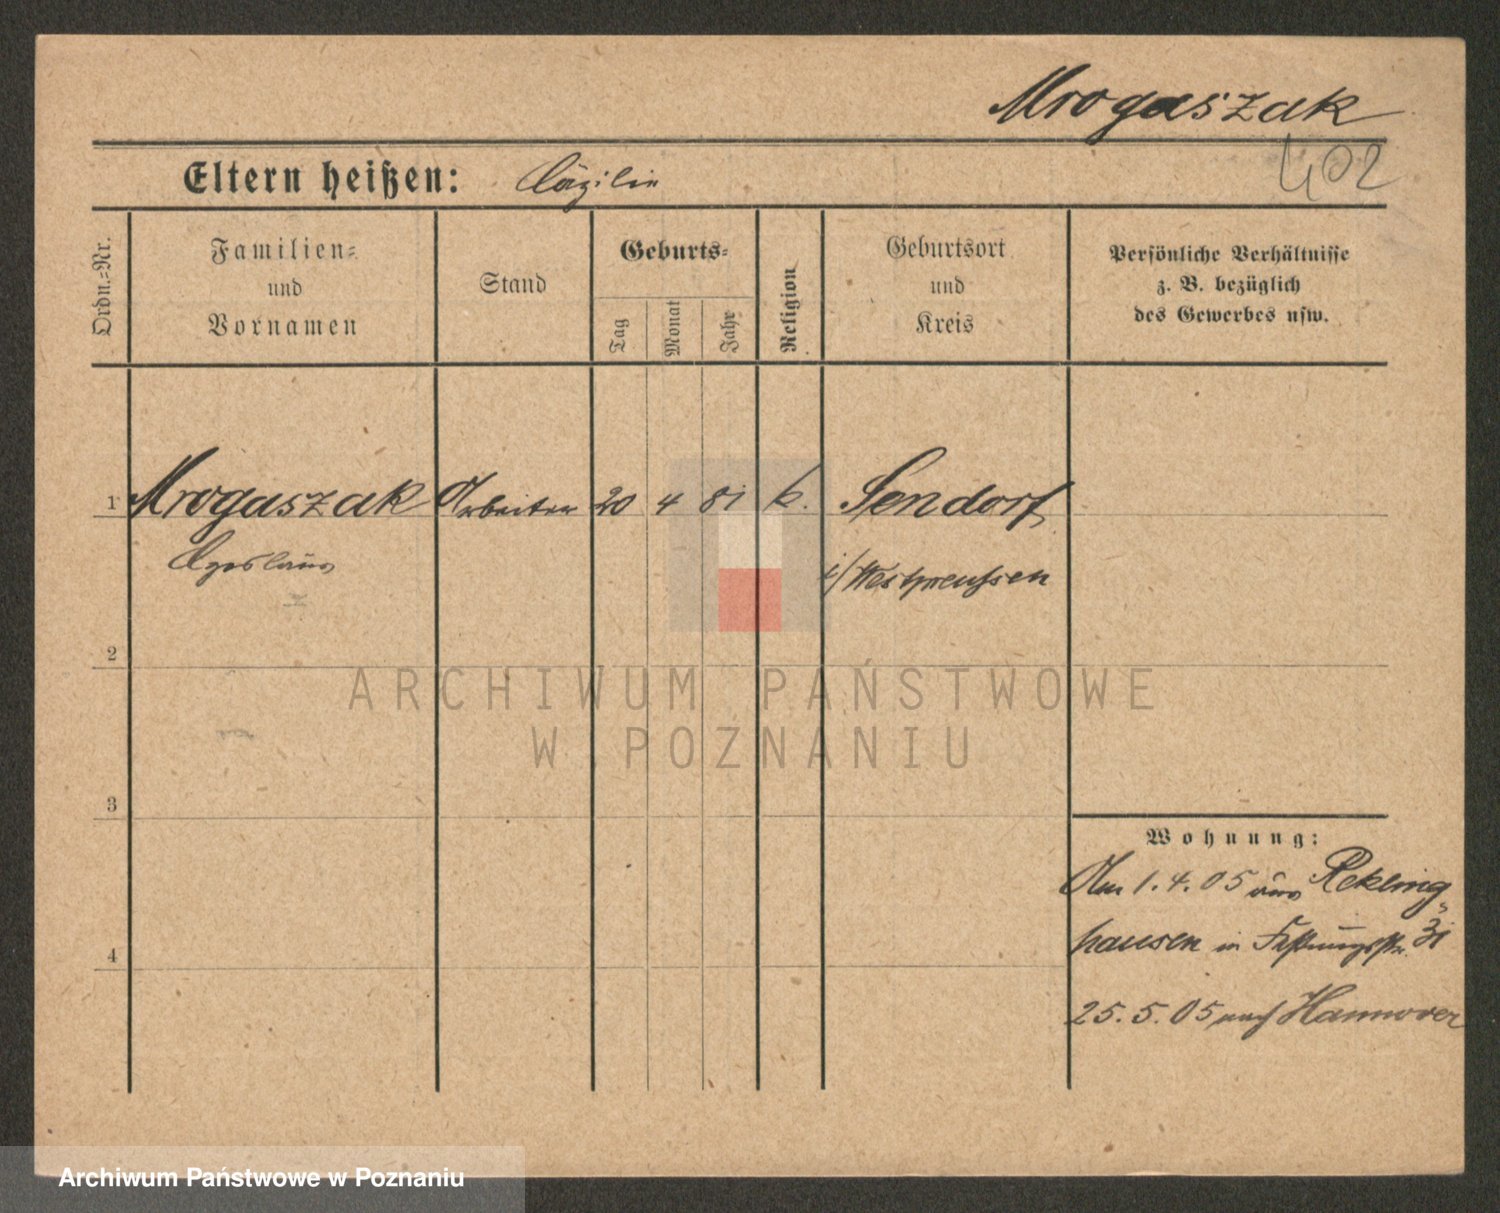 Mrogaszak
402
Eltern heißen: Cäzilie
Ordn.-Nr.
Familien-
und
Vornamen
Stand
Geburts-
Tag
Monat
Jahr
Religion
Geburtsort
und
Kreis
Persönliche Verhältnisse
z. B. bezüglich
des Gewerbes usw.
1 Mrogaszak Arbeiter 20 4 81 k. Sendorf
i/Westpreussen
2
ARCHIWUM PAŃSTWOWE
W POZNANIU
3
Wohnung:
Am 1.4.05 aus Rekling-
hausen in Festungsstr. 31
4
25.5.05 nach Hannover
Archiwum Państwowe w Poznaniu